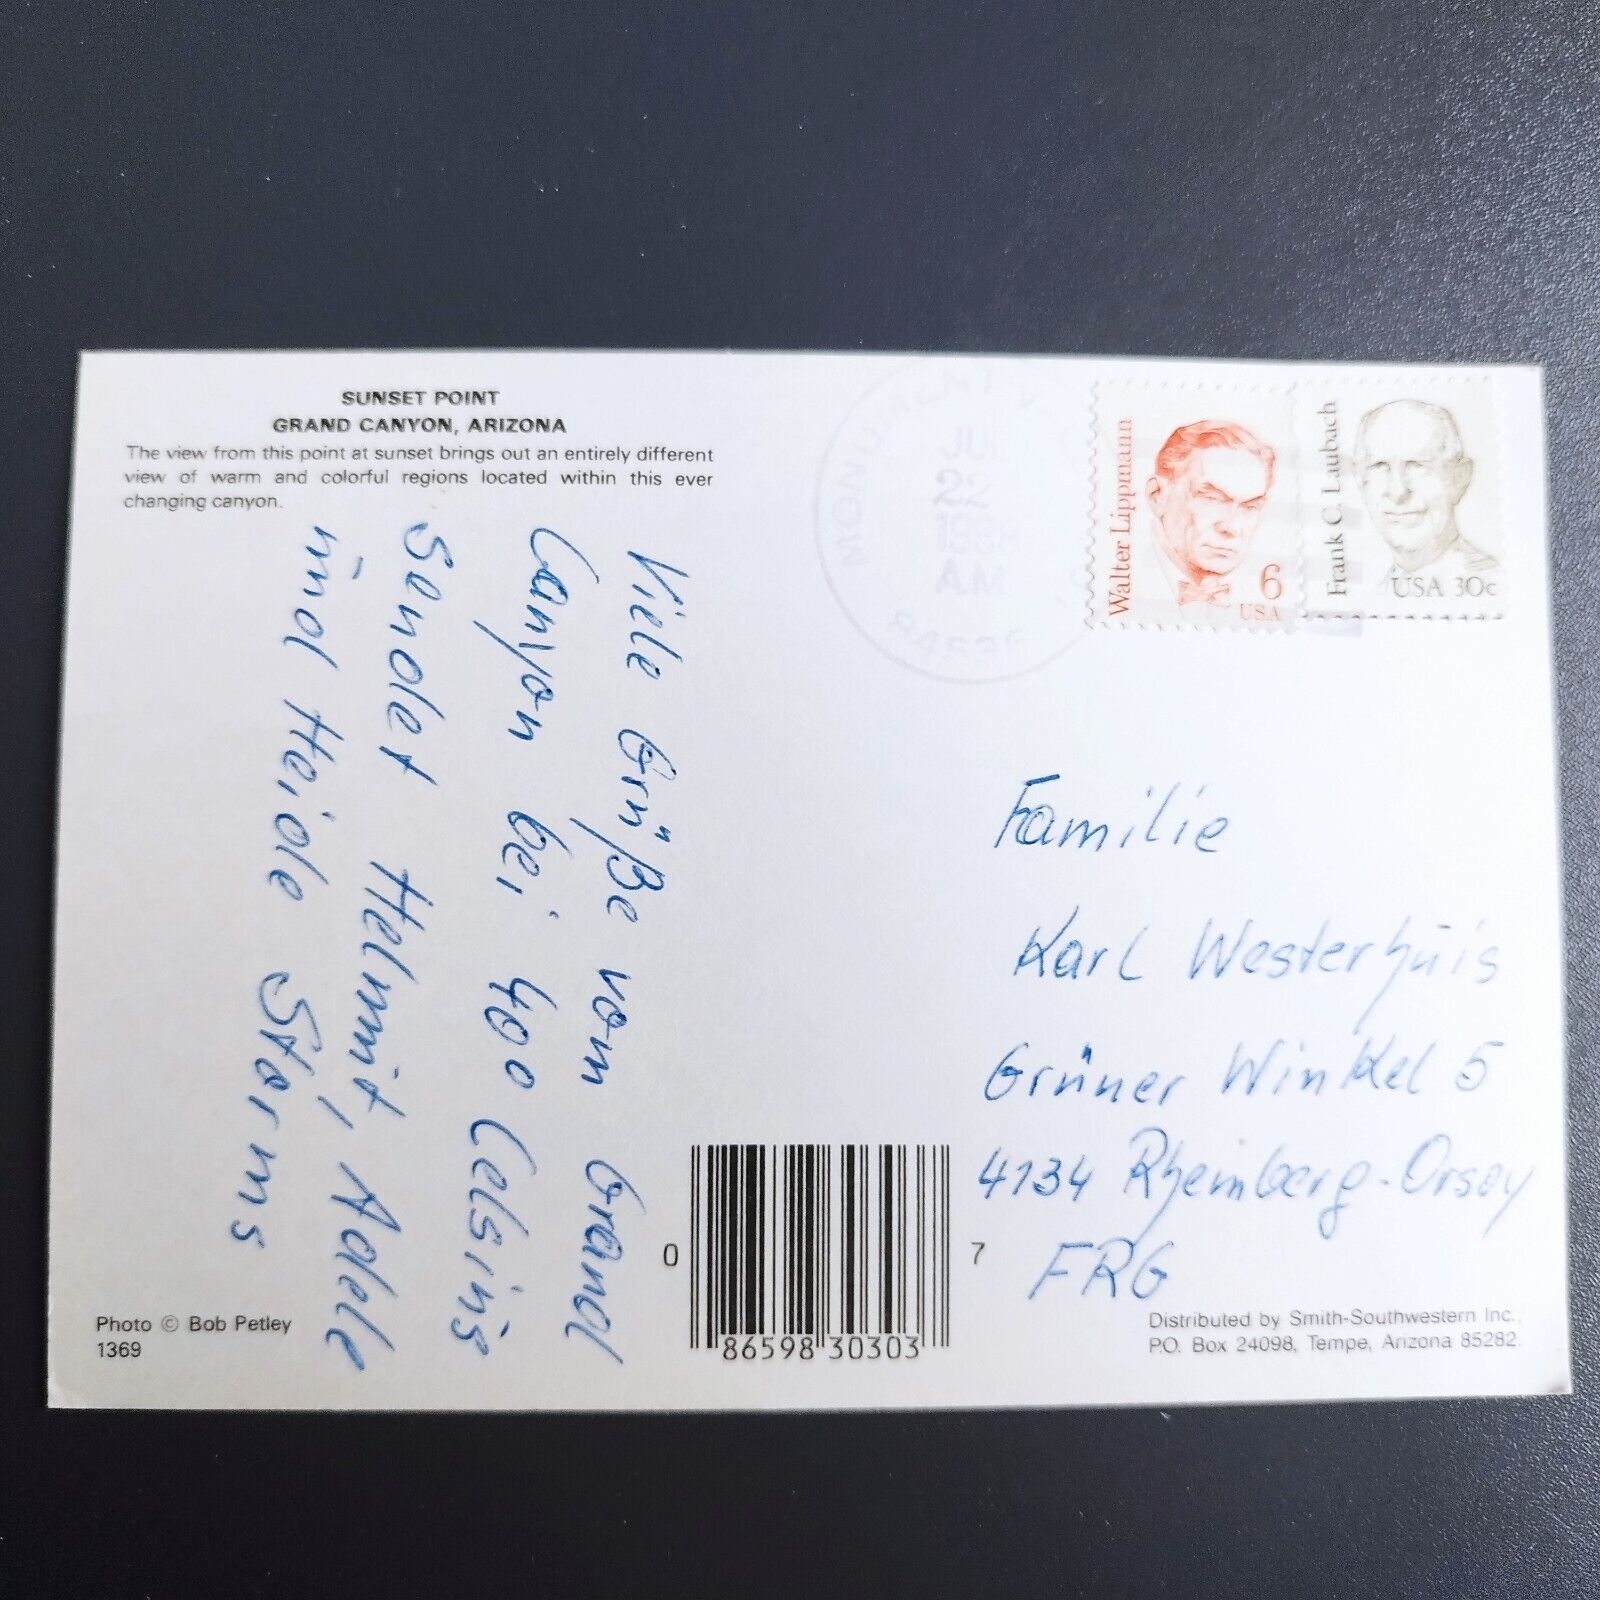 SUNSET POINT
GRAND CANYON, ARIZONA
The view from this point at sunset brings out an entirely different
view of warm and colorful regions located within this ever
changing canyon.
Viele Grüße vom Grand
Canyon bei 40° Celsius
sendet Helmut, Adele
und Heide Storms
Walter Lippmann
6
USA
Frank C. Laubach
USA 30c
Familie
Karl Westerhuis
Grüner Winkel 5
4134 Rheinberg-Orsoy
FRG
0 86598 30303 7
Photo © Bob Petley
1369
Distributed by Smith-Southwestern Inc.,
P.O. Box 24098, Tempe, Arizona 85282.